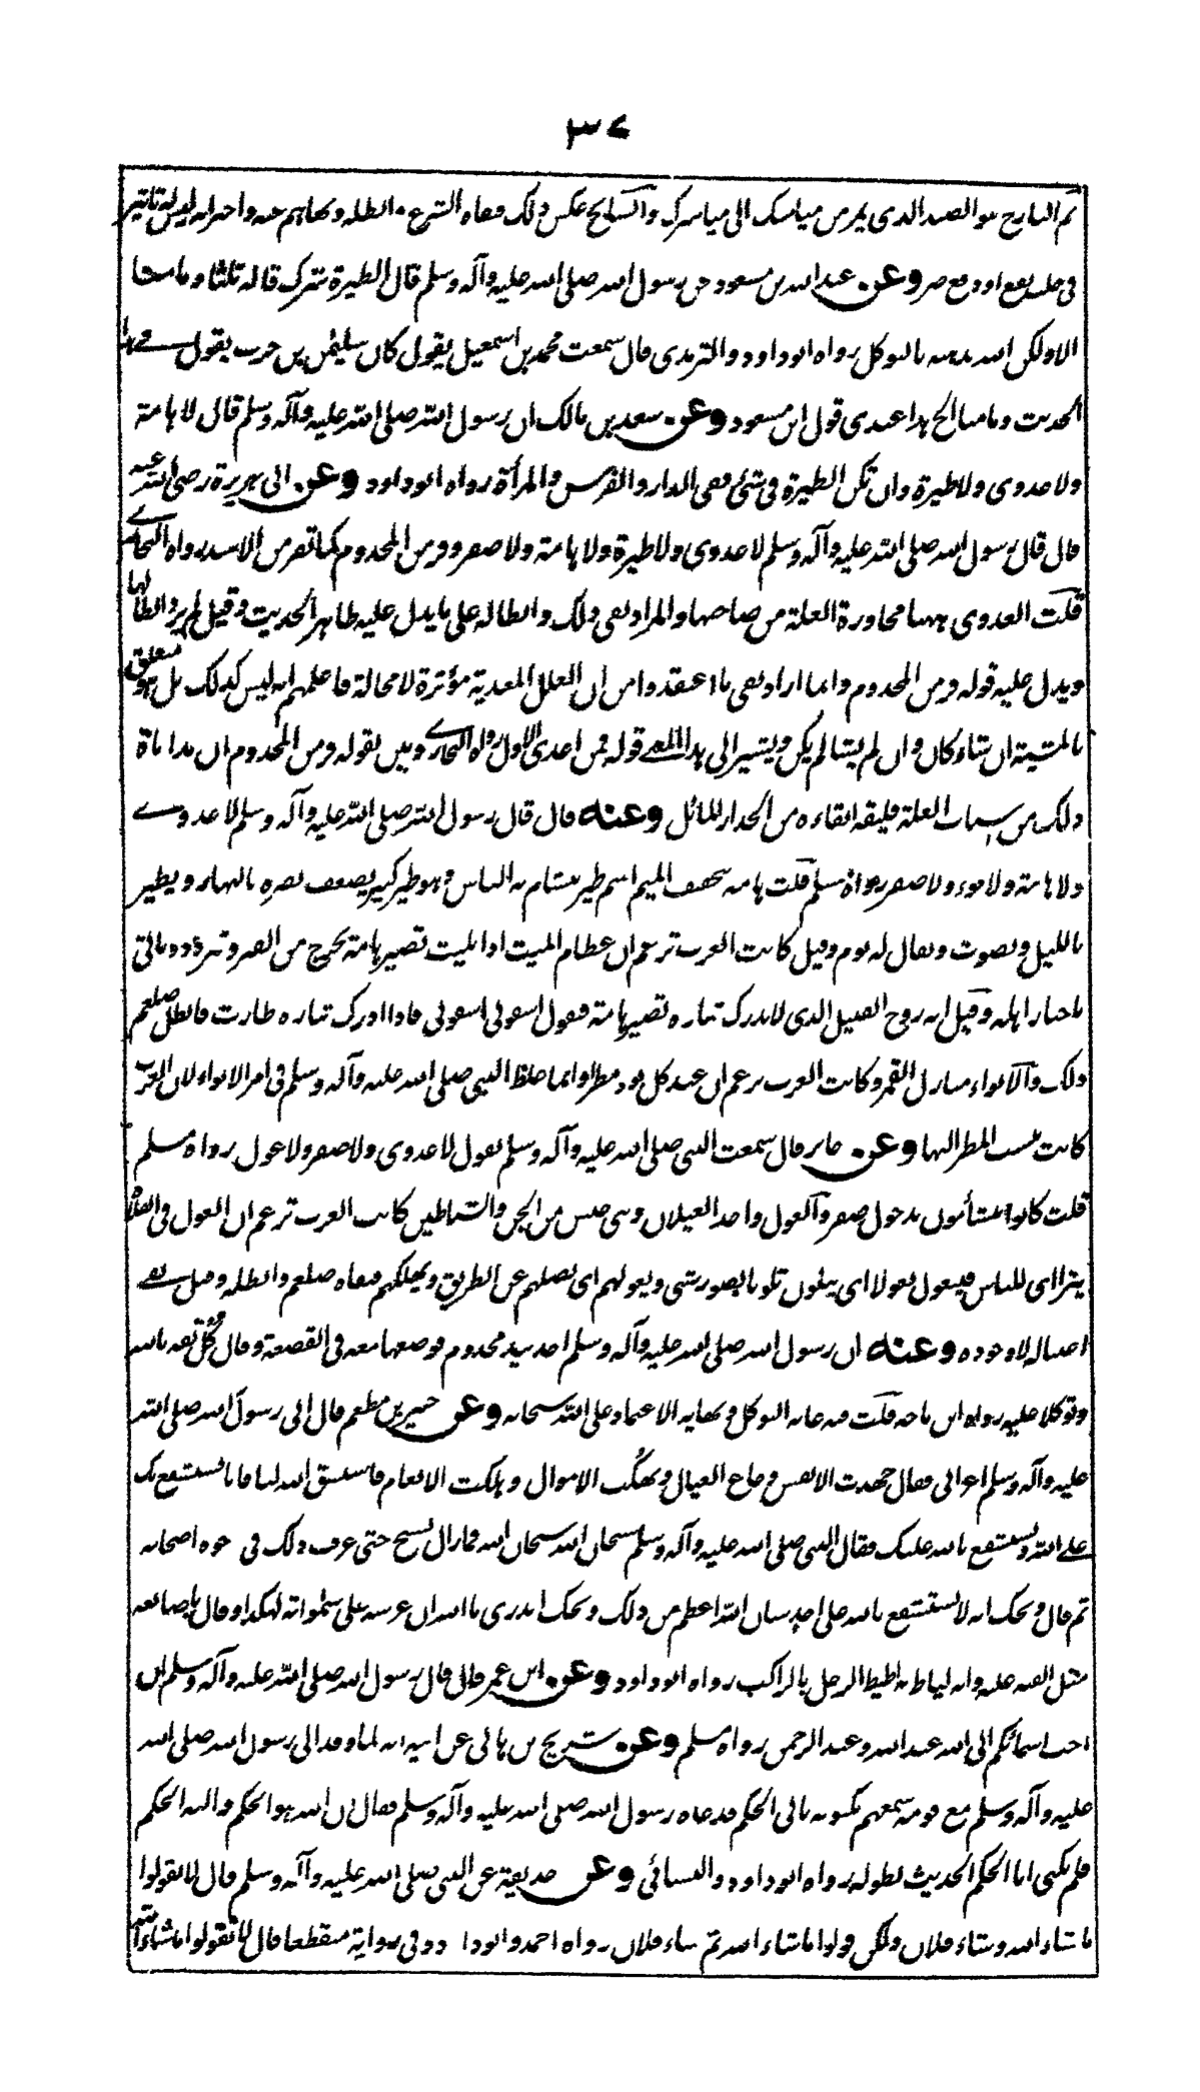 ٣٧
ثم البارح هو الصيد الذي يمر من ميامنك الى مياسرك والسانح عكس ذلك فنفاه الشرع وابطله ونهاهم عنه واخبر انه ليس له تاثير
في جلب نفع او دفع ضر وعن عبد الله بن مسعود عن رسول الله صلى الله عليه وآله وسلم قال الطيرة شرك قاله ثلثا وما منا
الا ولكن الله يذهبه بالتوكل رواه ابو داود والترمذي قال سمعت محمد بن اسمعيل يقول كان سليمن بن حرب يقول في هذا
الحديث وما منا الخ هذا عندي قول ابن مسعود وعن سعد بن مالك ان رسول الله صلى الله عليه وآله وسلم قال لا هامة
ولا عدوى ولا طيرة وان تكن الطيرة في شئ ففي الدار والفرس والمرأة رواه ابو داود وعن ابي هريرة رضي الله عنه
قال قال رسول الله صلى الله عليه وآله وسلم لا عدوى ولا طيرة ولا هامة ولا صفر وفر من المجذوم كما تفر من الاسد رواه البخاري
قلت العدوى ههنا مجاوزة العلة من صاحبها والمراد نفي ذلك وابطاله على ما يدل عليه ظاهر الحديث وقيل لم يرد ابطالها
ويدل عليه قوله وفر من المجذوم وانما اراد نفي ما اعتقدوا من ان العلل المعدية مؤثرة لا محالة فاعلمهم انه ليس كذلك بل هو متعلق
بالمشية ان شاء كان وان لم يشا لم يكن ويشير الى هذا المعنى قوله فمن اعدى الاول رواه البخاري وبين بقوله وفر من المجذوم ان مداناة
ذلك من اسباب العلة فليتقه اتقاءه من الجدار المائل وعنه قال قال رسول الله صلى الله عليه وآله وسلم لا عدوى
ولا هامة ولا نوء ولا صفر رواه مسلم قلت هامه بتخفيف الميم اسم طير يتشام به الناس وهو طير كبير يضعف بصره بالنهار ويطير
بالليل ويصوت ويقال له بوم وقيل كانت العرب تزعم ان عظام الميت اذا بليت تصير هامة تخرج من القبر وتتردد وتاتي
باخبار اهله وقيل انه روح القتيل الذي لا يدرك بثاره تصير هامة فيقول اسقوني اسقوني فاذا ادرك بثاره طارت فابطل صلعم
ذلك والانواء منازل القمر وكانت العرب تزعم ان عند كل نوء مطرا وانما غلظ النبي صلى الله عليه وآله وسلم في امر الانواء لان العرب
كانت تنسب المطر اليها وعن جابر قال سمعت النبي صلى الله عليه وآله وسلم يقول لا عدوى ولا صفر ولا غول رواه مسلم
قلت كانوا يتشأمون بدخول صفر والغول واحد الغيلان وهي جنس من الجن والشياطين كانت العرب تزعم ان الغول في الفلاة
يتراءى للناس فيتغول تغولا اي يتلون تلونا بصور شتى ويغولهم اي يضلهم عن الطريق ويهلكهم فنفاه صلعم وابطله وقيل نفى
اضلاله لا وجوده وعنه ان رسول الله صلى الله عليه وآله وسلم اخذ بيد مجذوم فوضعها معه في القصعة وقال كل ثقة بالله
وتوكلا عليه رواه ابن ماجه قلت فيه غاية التوكل ونهاية الاعتماد على الله سبحانه وعن جبير بن مطعم قال اتى رسول الله صلى الله
عليه وآله وسلم اعرابي فقال جهدت الانفس وجاع العيال ونهكت الاموال وهلكت الانعام فاستسق الله لنا فانا نستشفع بك
على الله ونستشفع بالله عليك فقال النبي صلى الله عليه وآله وسلم سبحان الله سبحان الله فما زال يسبح حتى عرف ذلك في وجوه اصحابه
ثم قال ويحك انه لا يستشفع بالله على احد شان الله اعظم من ذلك ويحك اتدري ما الله ان عرشه على سمٰواته لهكذا وقال باصابعه
مثل القبة عليه وانه ليأط به اطيط الرحل بالراكب رواه ابو داود وعن ابن عمر قال قال رسول الله صلى الله عليه وآله وسلم ان
احب اسمائكم الى الله عبد الله وعبد الرحمن رواه مسلم وعن شريح بن هاني عن ابيه انه لما وفد الى رسول الله صلى الله
عليه وآله وسلم مع قومه سمعهم يكنونه بابي الحكم فدعاه رسول الله صلى الله عليه وآله وسلم فقال ان الله هو الحكم واليه الحكم
فلم تكنى ابا الحكم الحديث بطوله رواه ابو داود والنسائي وعن حذيفة عن النبي صلى الله عليه وآله وسلم قال لا تقولوا
ما شاء الله وشاء فلان ولكن قولوا ما شاء الله ثم شاء فلان رواه احمد وابو داود وفي رواية منقطعا قال لا تقولوا ما شاء الله